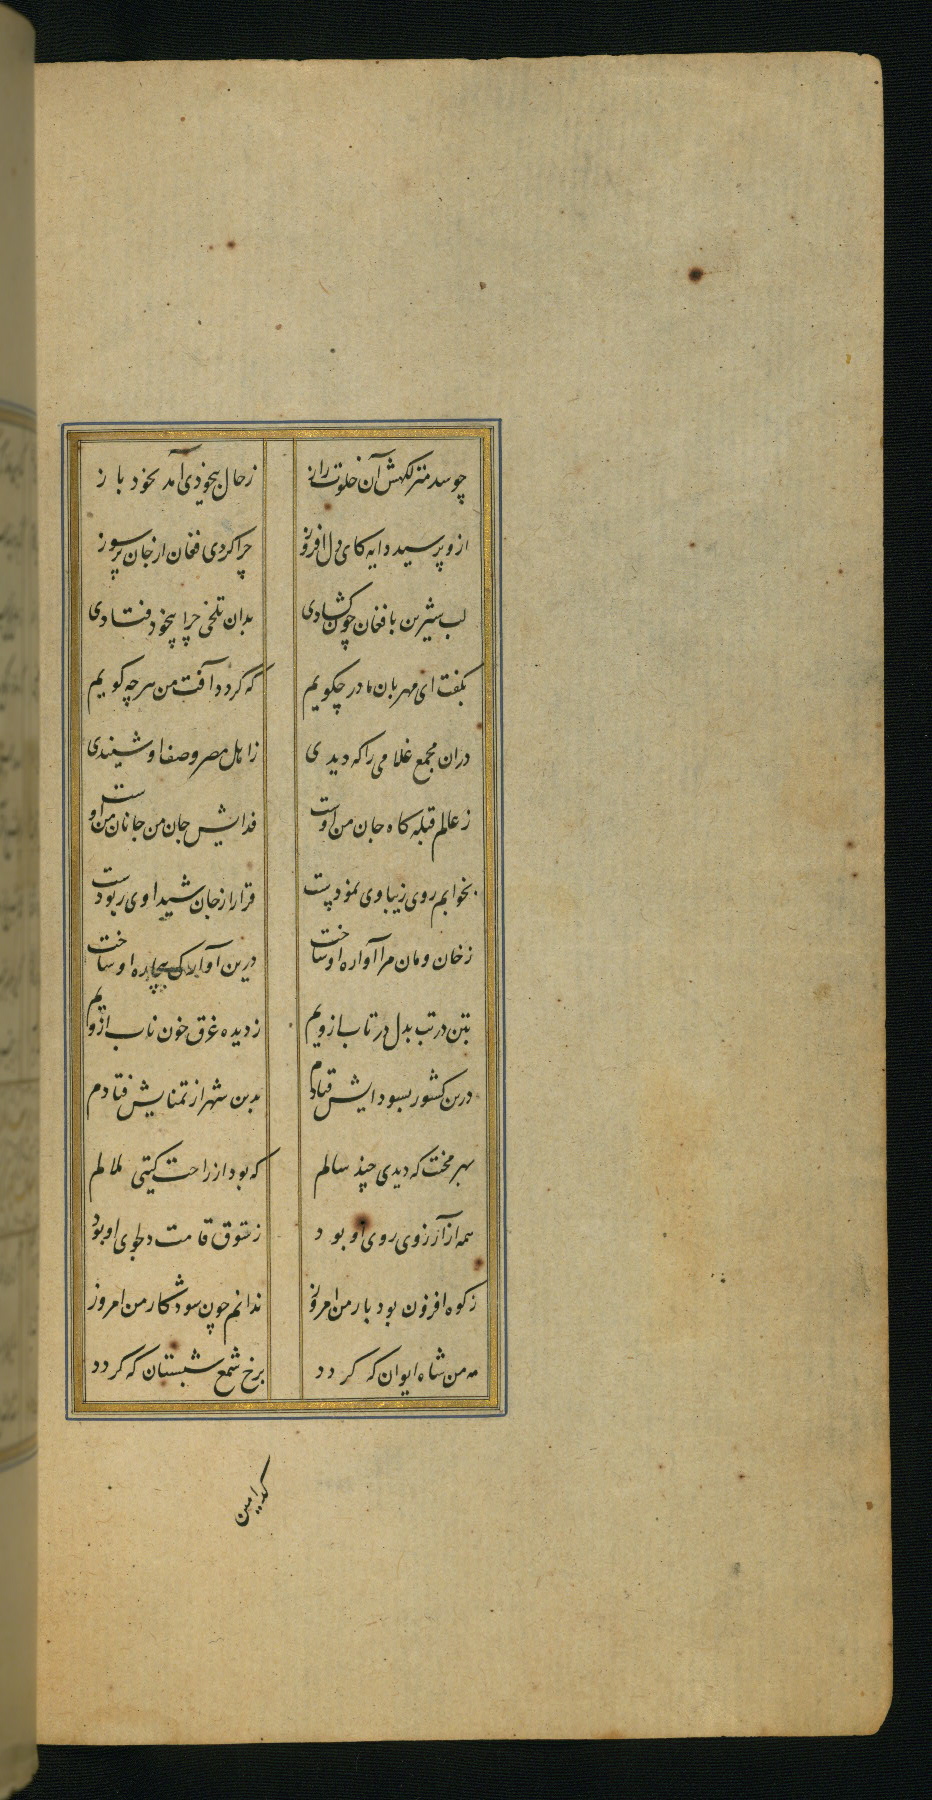 چو شد منزلگهش آن خلوت راز ز حال بیخودی آمد بخود باز
ازو پرسید دایه کای دل افروز چرا کردی فغان از جان پرسوز
لب شیرین بافغان چون کشادی بدان تلخی چرا بیخود فتادی
بکفت ای مهربان مادر چکویم که کردد آفت من هر چه کویم
دران مجمع غلامی را که دیدی ز اهل مصر وصف او شنیدی
ز عالم قبله کاه جان من اوست فدایش جان من جانان من اوست
بخوابم روی زیبا وی نمودست قرار از جان شیدا وی ربودست
ز خان و مان مرا آواره او ساخت درین آوارکی بیچاره او ساخت
بتن در تب بدل در تاب ازویم ز دیده غرق خون ناب ازویم
درین کشور بسودایش فتادم بدین شهر از تمنایش فتادم
بهر محنت که دیدی چند سالم که بود از راحت کیتی ملالم
همه از آرزوی روی او بود ز شوق قامت دلجوی او بود
ز کوه افزون بود بار من امروز ندانم چون شود کار من امروز
مه من شاه ایوان که کردد برخ شمع شبستان که کردد
کدامین